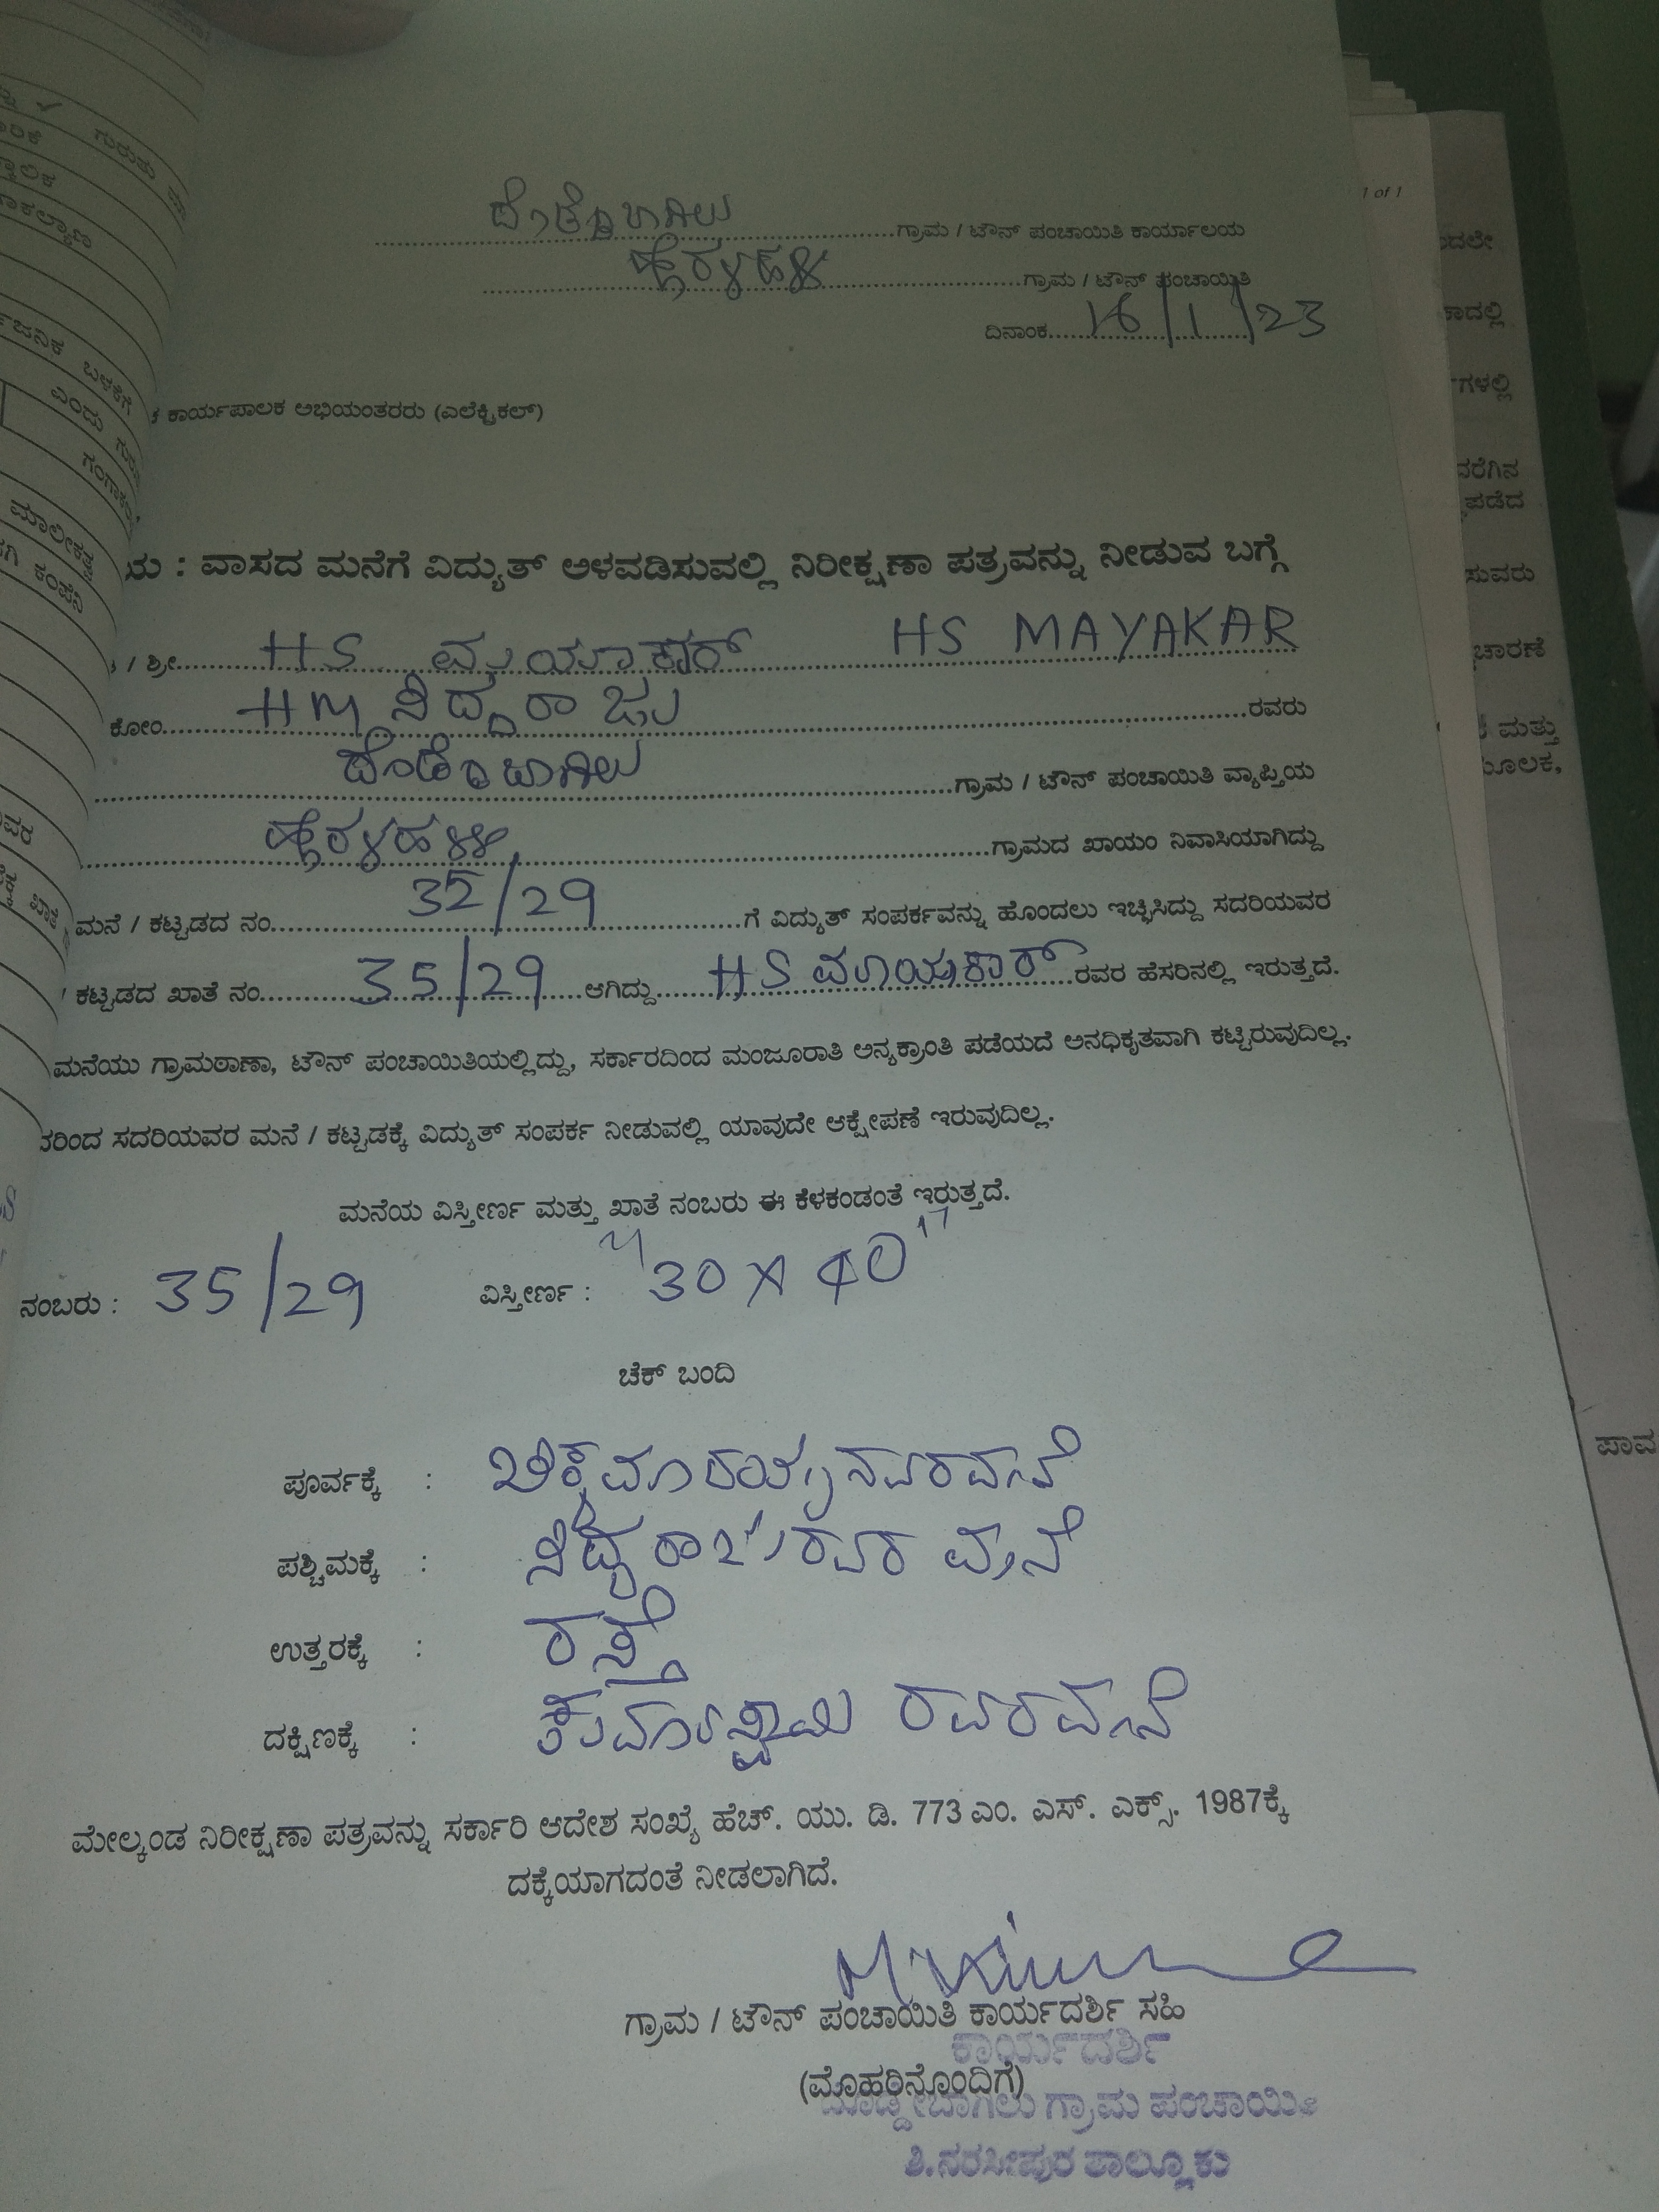 1 of 1
ದೊಡ್ಡೇಬಾಗಿಲು ಗ್ರಾಮ / ಟೌನ್ ಪಂಚಾಯಿತಿ ಕಾರ್ಯಾಲಯ
ಗ್ರಾಮ / ಟೌನ್ ಪಂಚಾಯಿತಿ
ದಿನಾಂಕ 16/1/23
ಕಾರ್ಯಪಾಲಕ ಅಭಿಯಂತರರು (ಎಲೆಕ್ಟ್ರಿಕಲ್)
ಯ : ವಾಸದ ಮನೆಗೆ ವಿದ್ಯುತ್ ಅಳವಡಿಸುವಲ್ಲಿ ನಿರೀಕ್ಷಣಾ ಪತ್ರವನ್ನು ನೀಡುವ ಬಗ್ಗೆ
/ ಶ್ರೀ HS ಮಾಯಾಕಾರ್ HS MAYAKAR
ಕೋಂ HM ಸಿದ್ದರಾಜು ರವರು
ದೊಡ್ಡೇಬಾಗಿಲು ಗ್ರಾಮ / ಟೌನ್ ಪಂಚಾಯಿತಿ ವ್ಯಾಪ್ತಿಯ
ಗ್ರಾಮದ ಖಾಯಂ ನಿವಾಸಿಯಾಗಿದ್ದು
ಮನೆ / ಕಟ್ಟಡದ ನಂ 35/29 ಗೆ ವಿದ್ಯುತ್ ಸಂಪರ್ಕವನ್ನು ಹೊಂದಲು ಇಚ್ಛಿಸಿದ್ದು ಸದರಿಯವರ
/ ಕಟ್ಟಡದ ಖಾತೆ ನಂ 35/29 ಆಗಿದ್ದು HS ಮಾಯಕಾರ್ ರವರ ಹೆಸರಿನಲ್ಲಿ ಇರುತ್ತದೆ.
ಮನೆಯು ಗ್ರಾಮಠಾಣಾ, ಟೌನ್ ಪಂಚಾಯಿತಿಯಲ್ಲಿದ್ದು, ಸರ್ಕಾರದಿಂದ ಮಂಜೂರಾತಿ ಅನ್ಯಕ್ರಾಂತಿ ಪಡೆಯದೆ ಅನಧಿಕೃತವಾಗಿ ಕಟ್ಟಿರುವುದಿಲ್ಲ.
ರಿಂದ ಸದರಿಯವರ ಮನೆ / ಕಟ್ಟಡಕ್ಕೆ ವಿದ್ಯುತ್ ಸಂಪರ್ಕ ನೀಡುವಲ್ಲಿ ಯಾವುದೇ ಆಕ್ಷೇಪಣೆ ಇರುವುದಿಲ್ಲ.
ಮನೆಯ ವಿಸ್ತೀರ್ಣ ಮತ್ತು ಖಾತೆ ನಂಬರು ಈ ಕೆಳಕಂಡಂತೆ ಇರುತ್ತದೆ.
ನಂಬರು : 35/29 ವಿಸ್ತೀರ್ಣ : "30 X 40"
ಚೆಕ್ ಬಂದಿ
ಪೂರ್ವಕ್ಕೆ : ಚಿಕ್ಕಮಾರಯ್ಯನವರ ಮನೆ
ಪಶ್ಚಿಮಕ್ಕೆ : ಸಿದ್ದರಾಜುರವರ ಮನೆ
ಉತ್ತರಕ್ಕೆ : ರಸ್ತೆ
ದಕ್ಷಿಣಕ್ಕೆ : ಕುಮಾರಸ್ವಾಮಿ ರವರ ಮನೆ
ಮೇಲ್ಕಂಡ ನಿರೀಕ್ಷಣಾ ಪತ್ರವನ್ನು ಸರ್ಕಾರಿ ಆದೇಶ ಸಂಖ್ಯೆ ಹೆಚ್. ಯು. ಡಿ. 773 ಎಂ. ಎಸ್. ಎಕ್ಸ್. 1987ಕ್ಕೆ
ದಕ್ಕೆಯಾಗದಂತೆ ನೀಡಲಾಗಿದೆ.
ಗ್ರಾಮ / ಟೌನ್ ಪಂಚಾಯಿತಿ ಕಾರ್ಯದರ್ಶಿ ಸಹಿ
ಕಾರ್ಯದರ್ಶಿ
(ಮೊಹರಿನೊಂದಿಗೆ)
ದೊಡ್ಡೇಬಾಗಿಲು ಗ್ರಾಮ ಪಂಚಾಯಿತಿ
ತಿ.ನರಸೀಪುರ ತಾಲ್ಲೂಕು